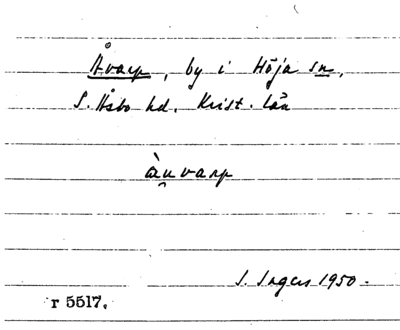 Åvarp, by i Höja sn,
S. Åsbo hd. Krist. län
àu̯varp
S. Ingers 1950.
r 5517.